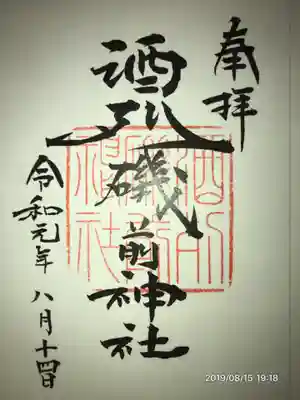 奉拝
酒列磯前神社
令和元年八月十四日
酒列
磯前
神社
2019/08/15 19:18